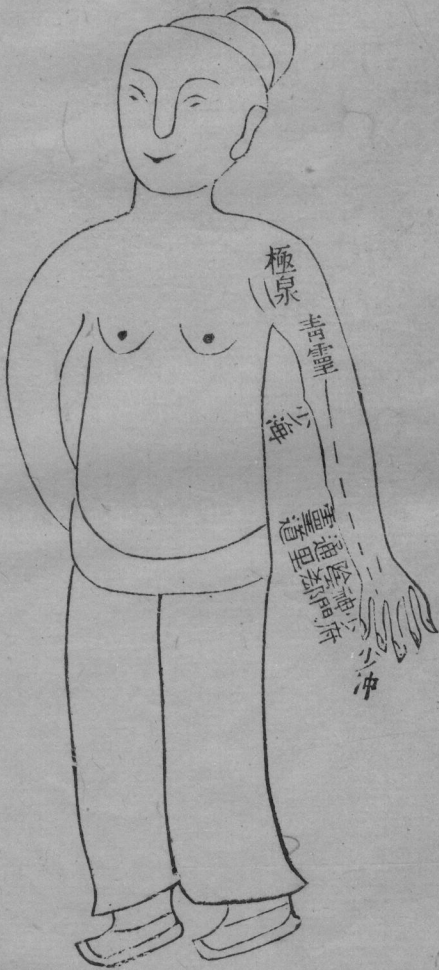 極泉
青靈
少海
靈道
通里
陰郄
神門
少府
少冲